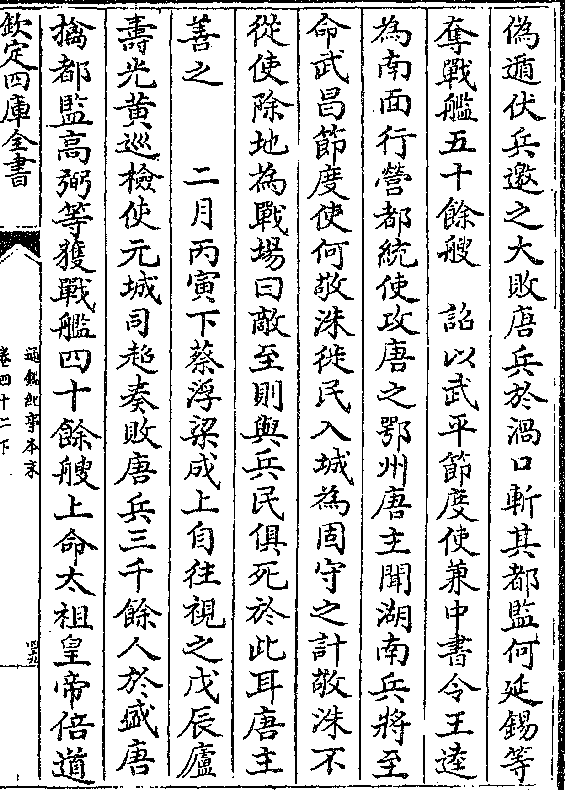 偽遁伏兵邀之大敗唐兵於渦口斬其都監何延錫等
奪戰艦五十餘艘　詔以武平節度使兼中書令王逵
為南面行營都統使攻唐之鄂州唐主聞湖南兵將至
命武昌節度使何敬洙徙民入城為固守之計敬洙不
從使除地為戰場曰敵至則與兵民俱死於此耳唐主
善之　　二月丙寅下蔡浮梁成上自往視之戊辰廬
壽光黃巡檢使元城司超奏敗唐兵三千餘人於盛唐
擒都監高弼等獲戰艦四十餘艘上命太祖皇帝倍道
欽定四庫全書
通鑑紀事本末
卷四十二下